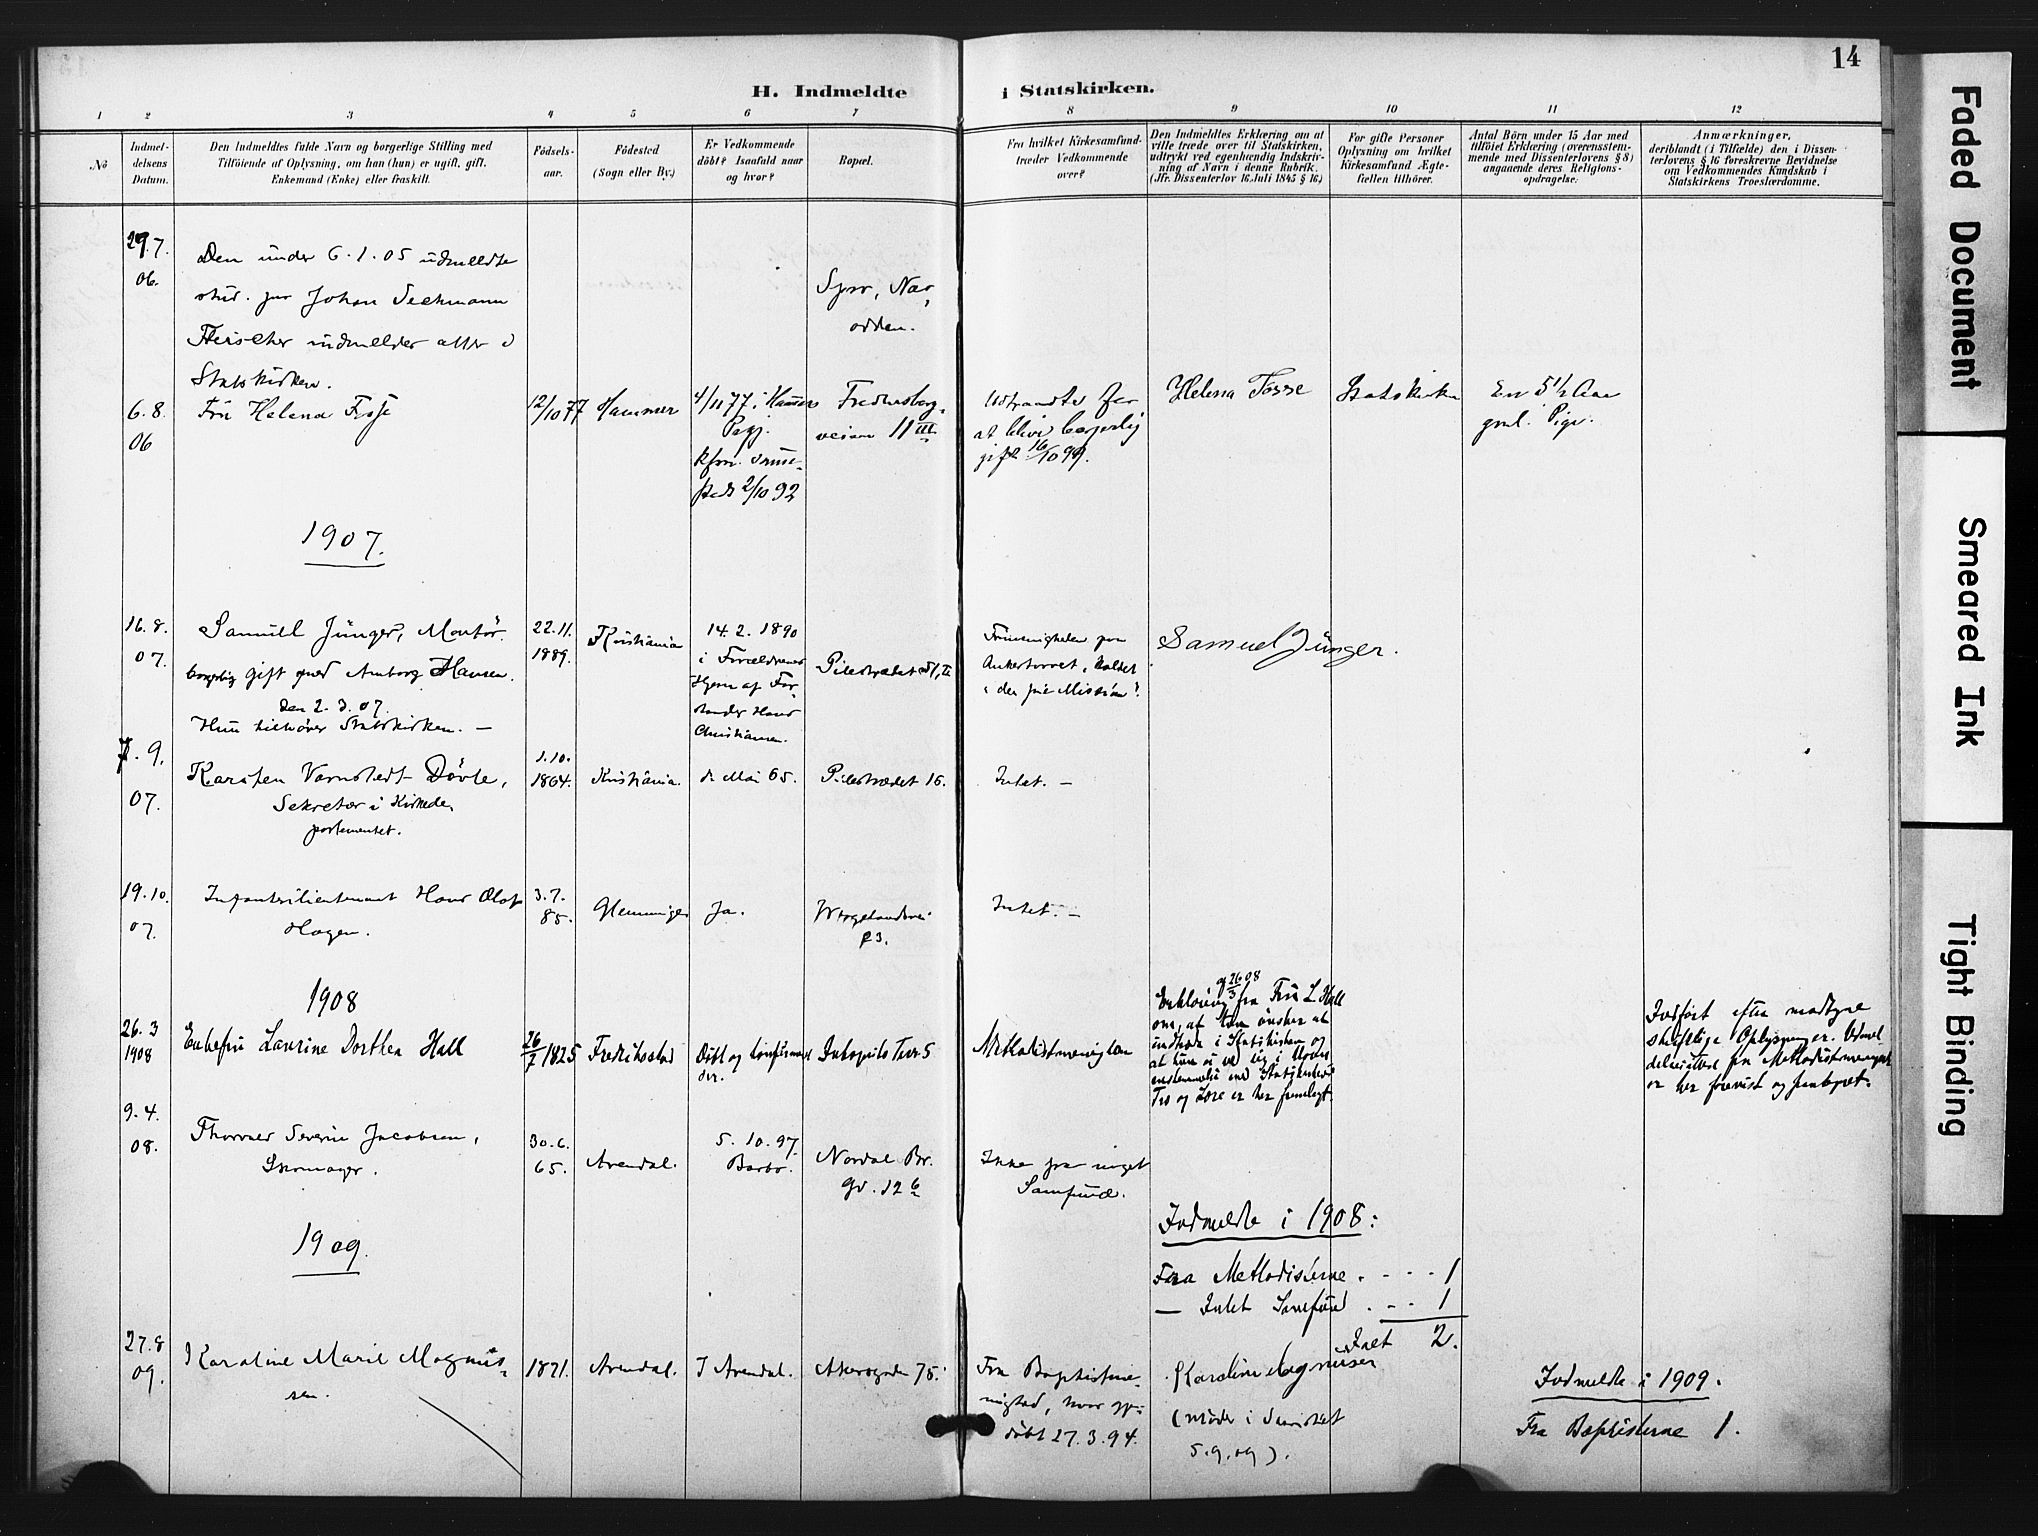 14
H. Indmeldte i Statskirken.
1 2 3 4 5 6 7 8 9 10 11 12
No
Indmel-
delsens
Datum.
Den Indmeldtes fulde Navn og borgerlige Stilling med
Tilföiende af Oplysning, om han (hun) er ugift, gift,
Enkemand (Enke) eller fraskilt.
Födsels-
aar.
Födested
(Sogn eller By.)
Er Vedkommende
döbt? Isaafald naar
og hvor?
Bopæl.
Fra hvilket Kirkesamfund
træder Vedkommende
over?
Den Indmeldtes Erklæring om at
ville træde over til Statskirken,
udtrykt ved egenhændig Indskriv-
ning af Navn i denne Rubrik.
(Jfr. Dissenterlov 16 Juli 1845 § 16)
For gifte Personer
Oplysning om hvilket
Kirkesamfund Ægte-
fællen tilhörer.
Antal Börn under 15 Aar med
tilföiet Erklæring (overensstem-
mende med Dissenterlovens § 8)
angaaende deres Religions-
opdragelse.
Anmærkninger,
deriblandt (i Tilfælde) den i Dissen-
terlovens § 16 foreskrevne Bevidnelse
om Vedkommendes Kundskab i
Statskirkens Troeslærdomme.
29.7.
06.
Den under 6.1.05 udmeldte
stud. jur Johan
indmeldes atter i
Statskirken.
odden.
6.8.
06
Fru Helena
12/10 77
Hammer
4/11 77 i Hammer
Pgj.
2/10 92
Fredensborg-
veien 11 III
Udtraadte for
at blive borgerlig
gift 16/10 99.
Helena Tosse
Statskirken
En 5 1/2 Aar
gml. Pige.
1907.
16.8.
07.
Samuel Jünger, Montör.
borgerlig gift med Hansen.
den 2.3.07.
Hun tilhörer Statskirken. —
22.11.
1889.
Kristiania
14.2.1890
i Forældrenes
Hjem af For-
stander Hans
Christiansen.
Pilestrædet
Frimenigheden paa
Ankertorvet, kaldet
"den frie Mission".
Samuel Jünger.
7.9.
07.
Karsten Varnstedt Dövle,
Sekretær i Kirkede-
partementet.
1.10.
1864.
Kristiania.
Mai 65.
Pilestrædet 16.
Intet. —
19.10.
07.
Infanteriløitenant Hans Olaf
Hagen.
3.7.
85.
Glemminge
Ja.
Intet. —
1908
26.3
1908
Enkefru Laurine Dorthea Hall
26/7 1825
Fredriksstad
Döbt og konfirmeret
der.
Torv 5
Methodistmenigheden
Erklæring af 26/3 08 fra Fru L. Hall
om, at hun önsker at
indtræde i Statskirken og
at hun
Overens-
stemmelse med Statskirkens
Tro og Lære er her fremlagt.
Indfört efter modtagne
skriftlige Oplysninger. Udmel
delsesattest fra Methodistmenigheden
er her forevist og
9.4.
08.
Severin Jacobsen,
Skomager.
30.6.
65.
Arendal.
5.10.97.
Barbo.
Nordal Br.
Gd. 12 b
Ikke fra noget
Samfund.
Indmeldte i 1908:
Fra Methodisterne . . . . 1
— Intet Samfund . . . 1
Ialt 2.
1909.
27.8
09.
Karoline Marie Magnus-
sen.
1821.
Arendal.
I Arendal.
Akersgaden 75.
Fra Baptistme-
nighed, hvor
döbt 27.3.94.
Karoline Magnusen
(Möder i Sakristiet
5.9.09).
Indmeldte i 1909.
Fra Baptisterne 1.
Faded Document
Smeared Ink
Tight Binding